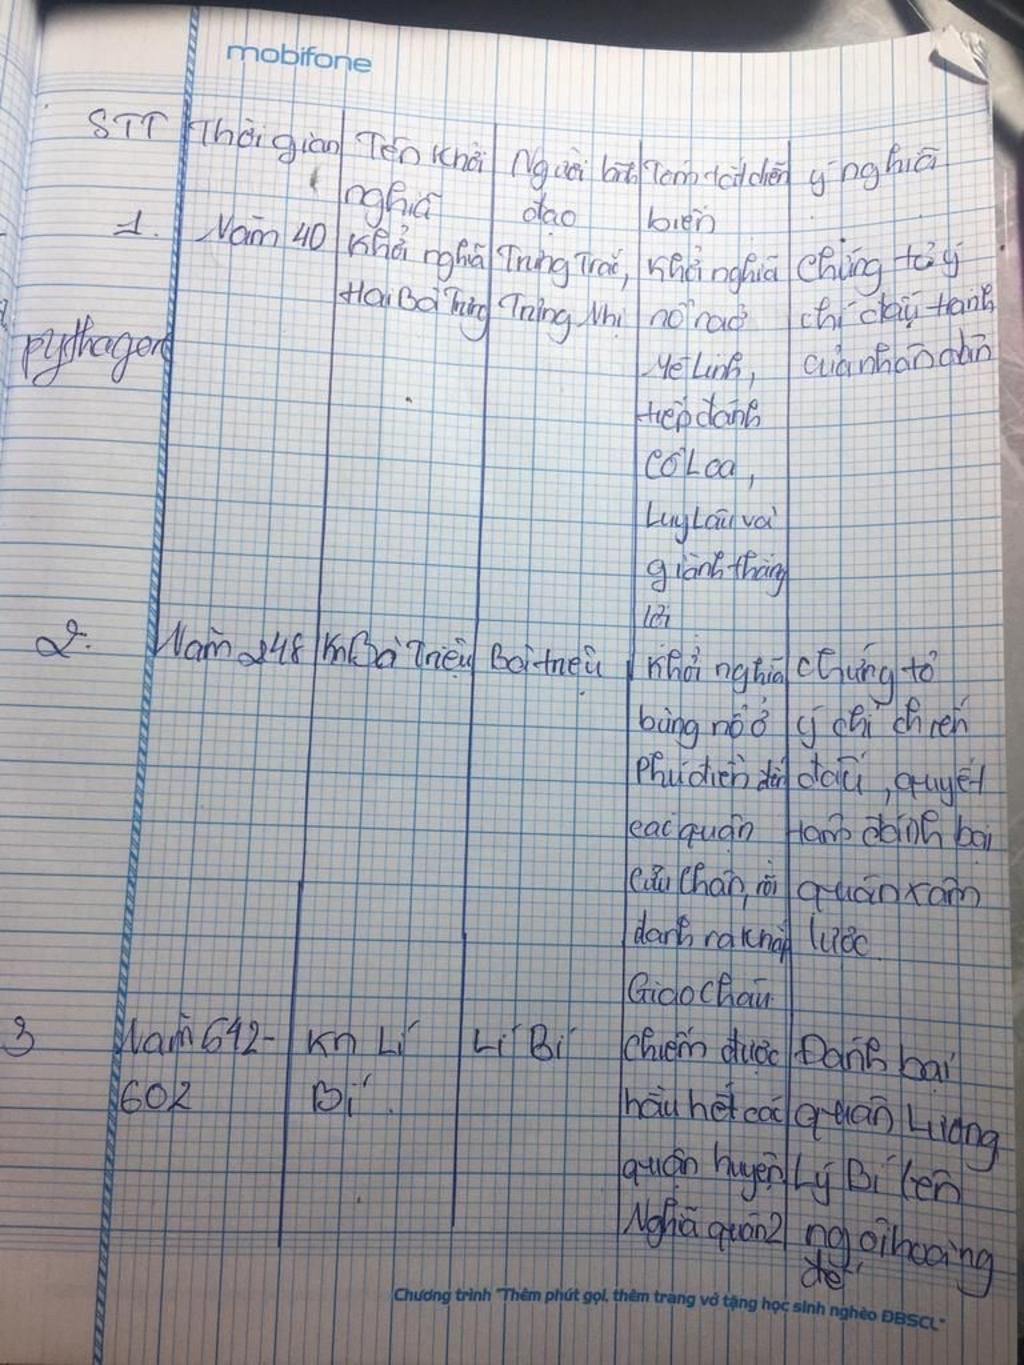 mobifone
STT Thời gian Tên khởi nghĩa Người lãnh đạo Tóm tắt diễn biến ý nghĩa
1. Năm 40 Khởi nghĩa Hai Bà Trưng Trưng Trắc, Trưng Nhị Khởi nghĩa nổ ra ở Mê Linh, tiếp đánh Cổ Loa, Luy Lâu và giành thắng lợi chứng tỏ ý chí đấu tranh của nhân dân
pythagore
2. Năm 248 KN Bà Triệu Bà triệu Khởi nghĩa bùng nổ ở Phú điền đến các quận Cửu Chân, rồi đánh ra khắp Giao Châu chứng tỏ ý chí chiến đấu, quyết tâm đánh bại quân xâm lược
3 Năm 542-602 KN Lí Bí Lí Bí chiếm được hầu hết các quận huyện Nghĩa quân 2 Đánh bại quân Lương Lý Bí lên ngôi hoàng đế
Chương trình "Thêm phút gọi, thêm trang vở tặng học sinh nghèo ĐBSCL"